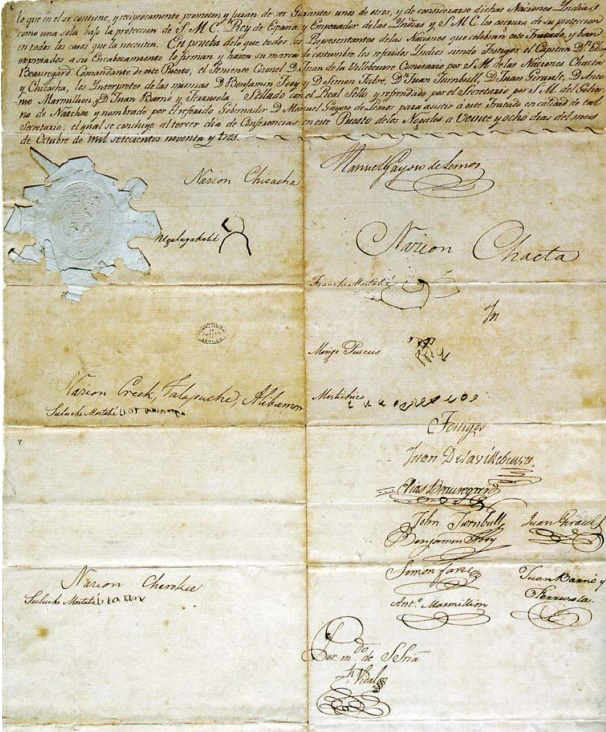 lo que en el se contiene, y reciprocamente prometen y juran de ser Garantes unos de otros, y de considerarse dichas Naciones Yndias
como una sola bajo la proteccion de S. M. C. Rey de España y Emperador de las Yndias y S. M. C. les asegura de su proteccion
en todos los casos que la necesiten. En prueba de lo que todos los Representantes de las Naciones que celebran este Tratado, y ban
expresados a su Encabezamiento lo firman y hacen su marca de costumbre los referidos Yndios siendo Testigos el Capitan Dn. Elias
Beauregard Comandante de este Puesto, el Teniente Coronel Dn. Juan de la Villebeuvre Comisario por S. M. de las Naciones Chactas
y Chicacha, los Interpretes de las mismas D. Benjamin Fooy y D. Simon Favre, Dn. Juan Turnbull, D. Juan Girault, D. Anto-
nio Marmillion, y D. Juan Barnó y Ferrusola. Sellado con el Real Sello y refrendado, por el Secretario por S. M. del Gobier-
no de Natchez y nombrado por el referido Gobernador D. Manuel Gayoso de Lemos para asistir á este Tratado en calidad de tal
Secretario; el qual se concluyó al tercer dia de Conferencias en este Puesto de los Nogales a Veinte y ocho dias del mes
de Octubre de mil setecientos noventa y tres.
Manuel Gayoso de Lemos
Nacion Chicacha
Ugalayakabé
Nacion Chacta
Franche Mastabié
Mongo Puscus
Nacion Creek, Talapuche, Alibamon
Suluche Mastabé
Testigos
Juan Delavillebeuvre
Elias Beauregard
John Turnbull
Juan Girault
Benjamin Foy
Simon Favre
Juan Barnó y
Ferrusola
Nacion Cherokee
Suluche Mastabé
Anto. Marmillion
Por mdo. de S Sria
Jh. Vidal